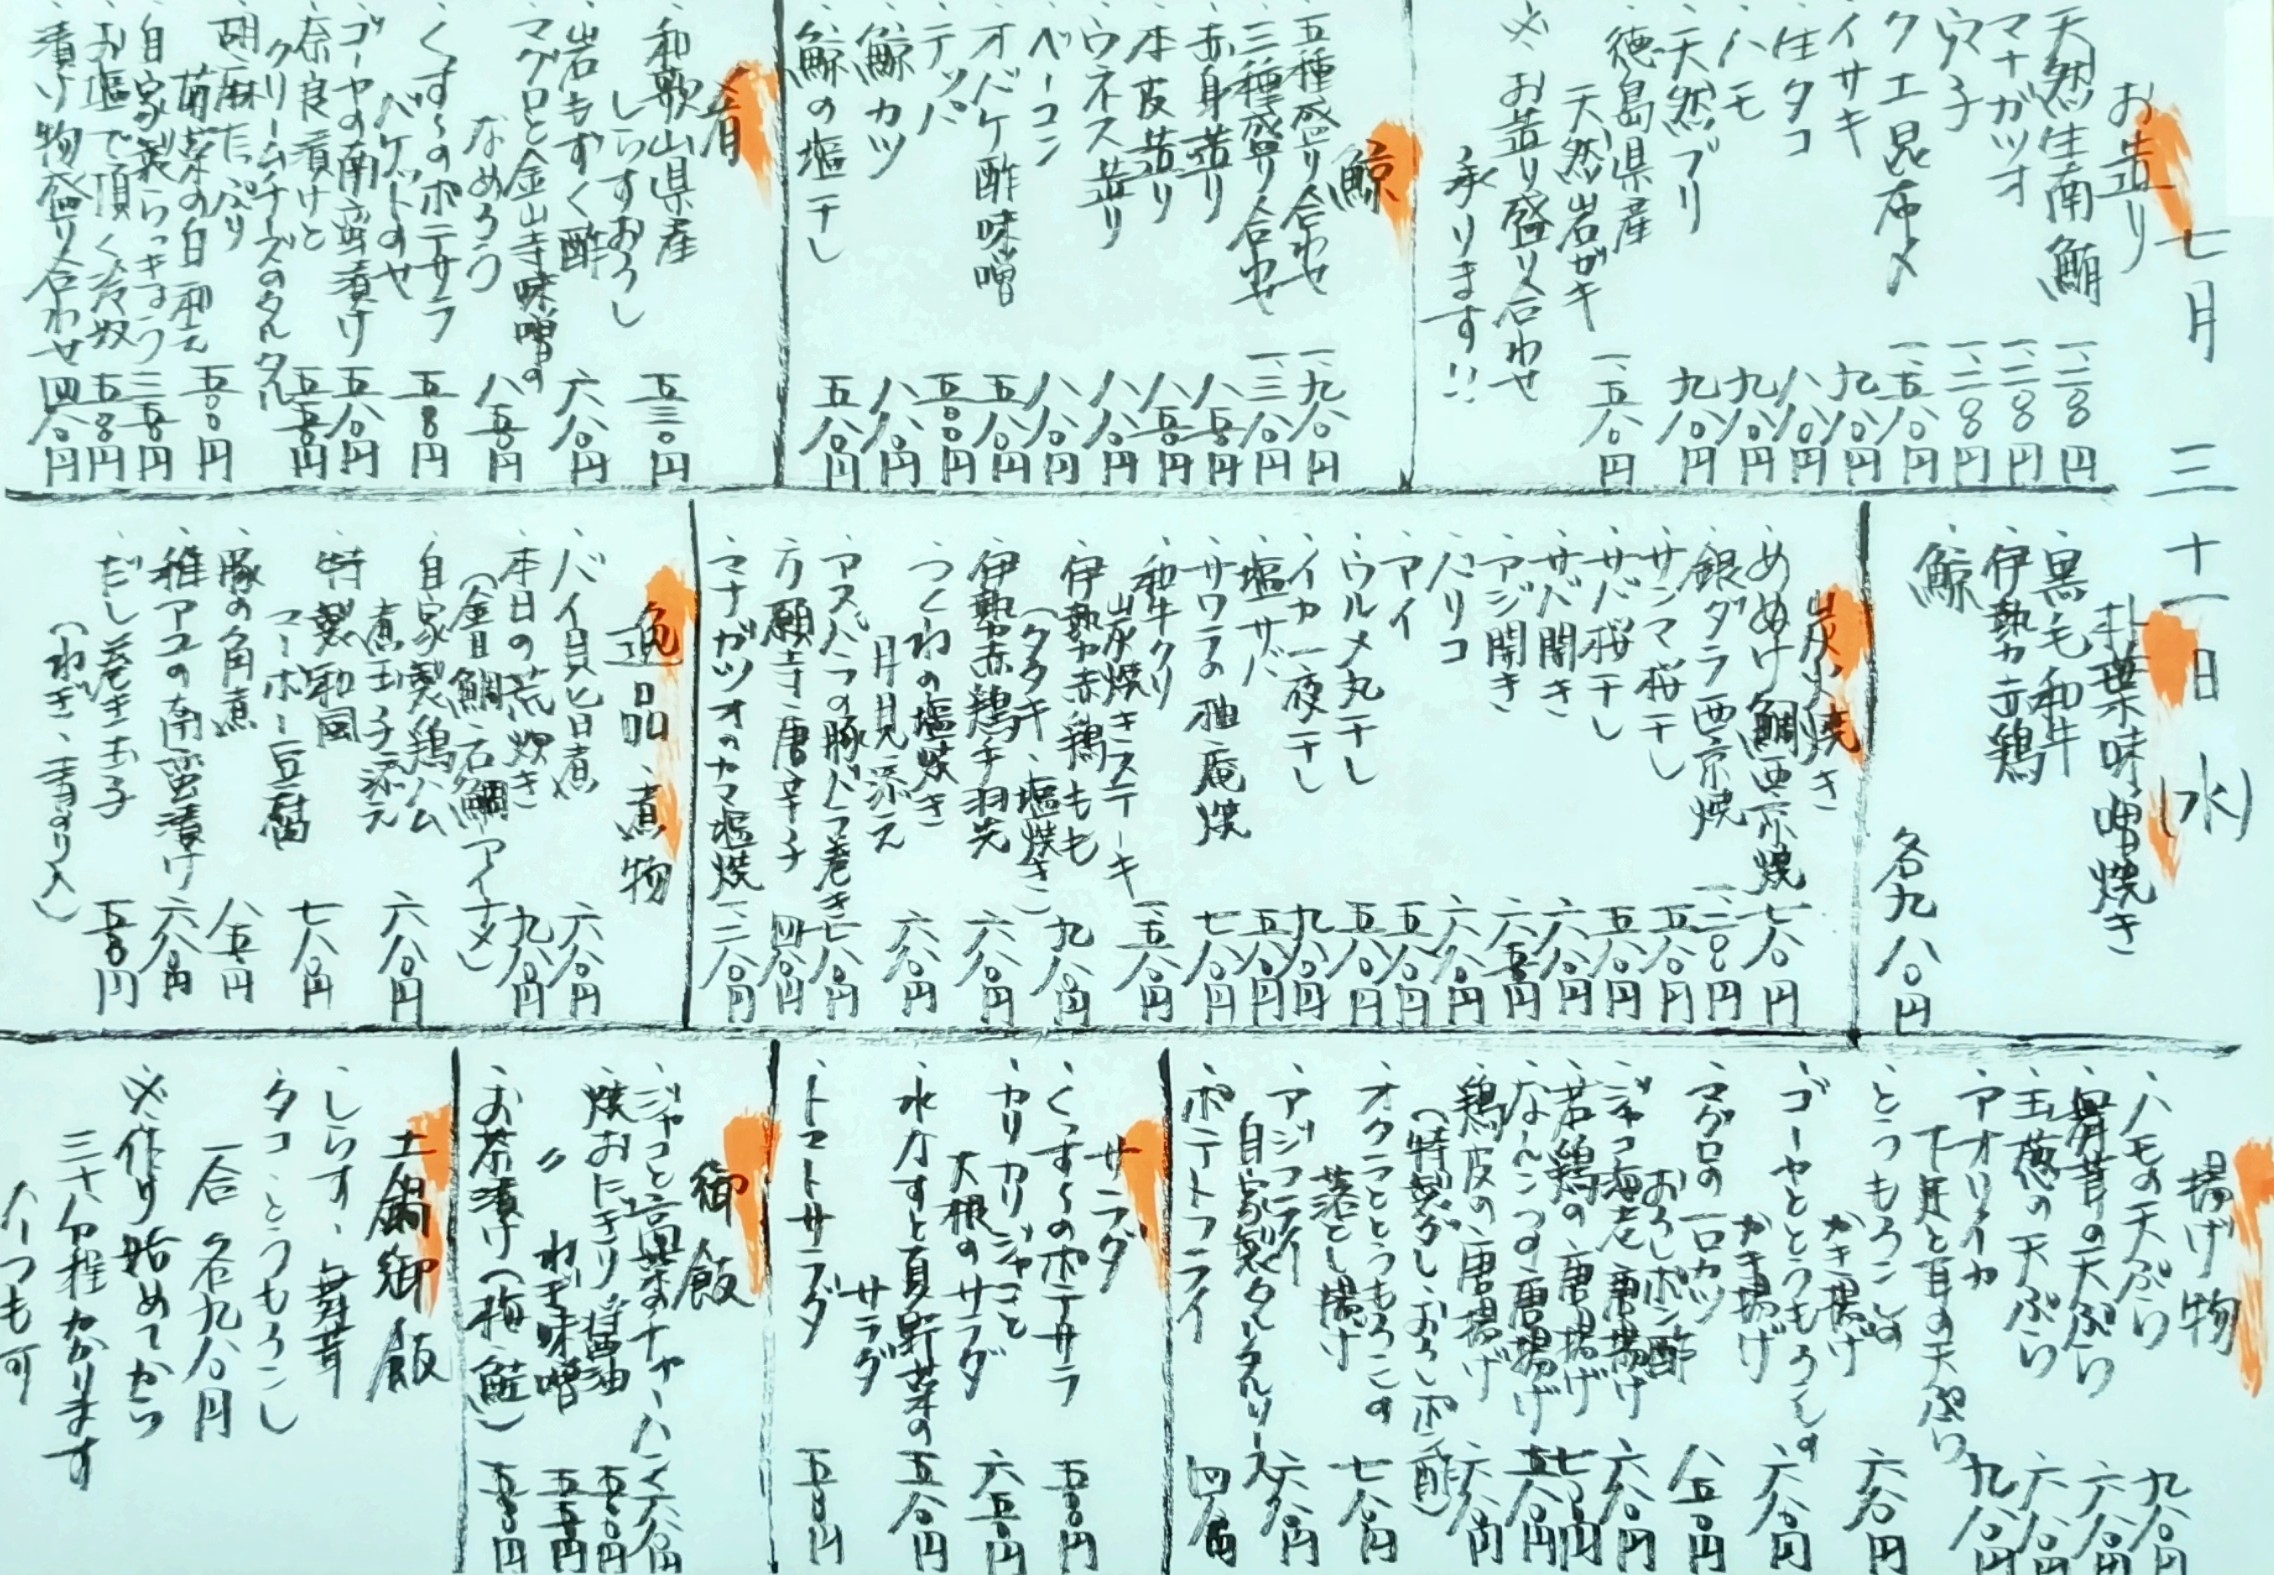 七月 三十一日 (水)
お造り
、天然生南鮪 一、二八〇円
、マナガツオ 一、二八〇円
、穴子 一、二八〇円
、クエ昆布〆 一、五八〇円
、イサキ 九八〇円
、生タコ 八八〇円
、ハモ 九八〇円
、天然ブリ 九八〇円
、徳島県産
天然岩ガキ 一、五八〇円
※お造り盛り合わせ
承ります!!
鯨
、五種盛り合わせ 一、九八〇円
、三種盛り合わせ 一、三八〇円
、赤身造り 八五〇円
、本皮造り 八五〇円
、ウネス造り 八八〇円
、ベーコン 八八〇円
、オバケ酢味噌 五八〇円
、テッパ 五五〇円
、鯨カツ 八八〇円
、鯨の塩干し 五八〇円
肴
、和歌山県産
しらすおろし 五三〇円
、岩もずく酢 六八〇円
、マグロと金山寺味噌の
なめろう 八五〇円
、くす〜のポテサラ
バケットのせ 五五〇円
、ゴーヤの南蛮漬け 五八〇円
、奈良漬けと
クリームチーズのタルタル 五五〇円
、胡麻たっぷり
菊菜の白和え 五〇〇円
、自家製らっきょう 三五〇円
、お塩で頂く冷奴 五五〇円
、漬け物盛り合わせ 四八〇円
朴葉味噌焼き
、黒毛和牛
、伊勢赤鶏
、鯨
各九八〇円
炭火焼き
、めぬけ鯛西京焼 七八〇円
、銀ダラ西京焼 一、二〇〇円
、サンマ桜干し 五八〇円
、サバ桜干し 五八〇円
、サバ開き 六八〇円
、アジ開き 六五〇円
、バリコ 六八〇円
、アイ 五八〇円
、ウルメ丸干し 五八〇円
、イカ一夜干し 九八〇円
、塩サバ 五八〇円
、サワラの柚庵焼 七八〇円
、和牛クリ
炭焼きステーキ 一、五八〇円
、伊勢赤鶏もも
(タタキ、塩焼き) 九八〇円
、伊勢赤鶏手羽先 六八〇円
、つくねの塩焼き
月見添え 六八〇円
、アスパラの豚バラ巻き 七八〇円
、万願寺唐辛子 四八〇円
、マナガツオのカマ塩焼 一、二八〇円
逸品、煮物
、バイ貝旨煮 六八〇円
、本日の荒炊き 九八〇円
(金目鯛、石鯛、アイナメ)
、自家製鶏ハム
煮玉子添え 六八〇円
、特製和風
マーボー豆腐 七八〇円
、豚の角煮 八五〇円
、稚アユの南蛮漬け 六八〇円
、だし巻き玉子 五五〇円
揚げ物
、ハモの天ぷら 九八〇円
、舞茸の天ぷら 六八〇円
、玉葱の天ぷら 六八〇円
、アオリイカ
下足と耳の天ぷら 九八〇円
、とうもろこしの
かき揚げ 六八〇円
、ゴーヤととうもろこしの
かき揚げ 六八〇円
、マグロの一口カツ
おろしポン酢 八五〇円
、ジャコ海老唐揚げ 六八〇円
、若鶏の唐揚げ 七五〇円
、なんこつの唐揚げ 五八〇円
、鶏皮の唐揚げ 六八〇円
(特製ダレ、おろしポン酢)
、オクラととうもろこしの
落とし揚げ 七八〇円
、アジフライ
自家製タルタルソース 六八〇円
、ポテトフライ 四八〇円
サラダ
、くす〜のポテサラ 五五〇円
、カリカリジャコと
大根のサラダ 六五〇円
、水なすと夏野菜の
サラダ 五八〇円
、トマトサラダ 五五〇円
御飯
、ジャコと高菜のチャーハン 六八〇円
、焼おにぎり、醤油 五五〇円
〃 ねぎ味噌 五五〇円
、お茶漬け(梅、鮭) 五五〇円
土鍋御飯
、しらす、舞茸
タコ、とうもろこし
一合 各九八〇円
※作り始めてから
三十八分程かかります